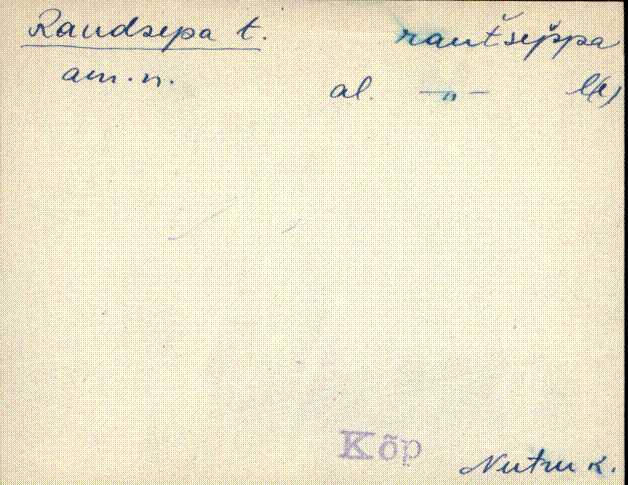 Raudsepa t. rautseppa
am.n. al. —„— l(e)
Kõp
Nutru k.